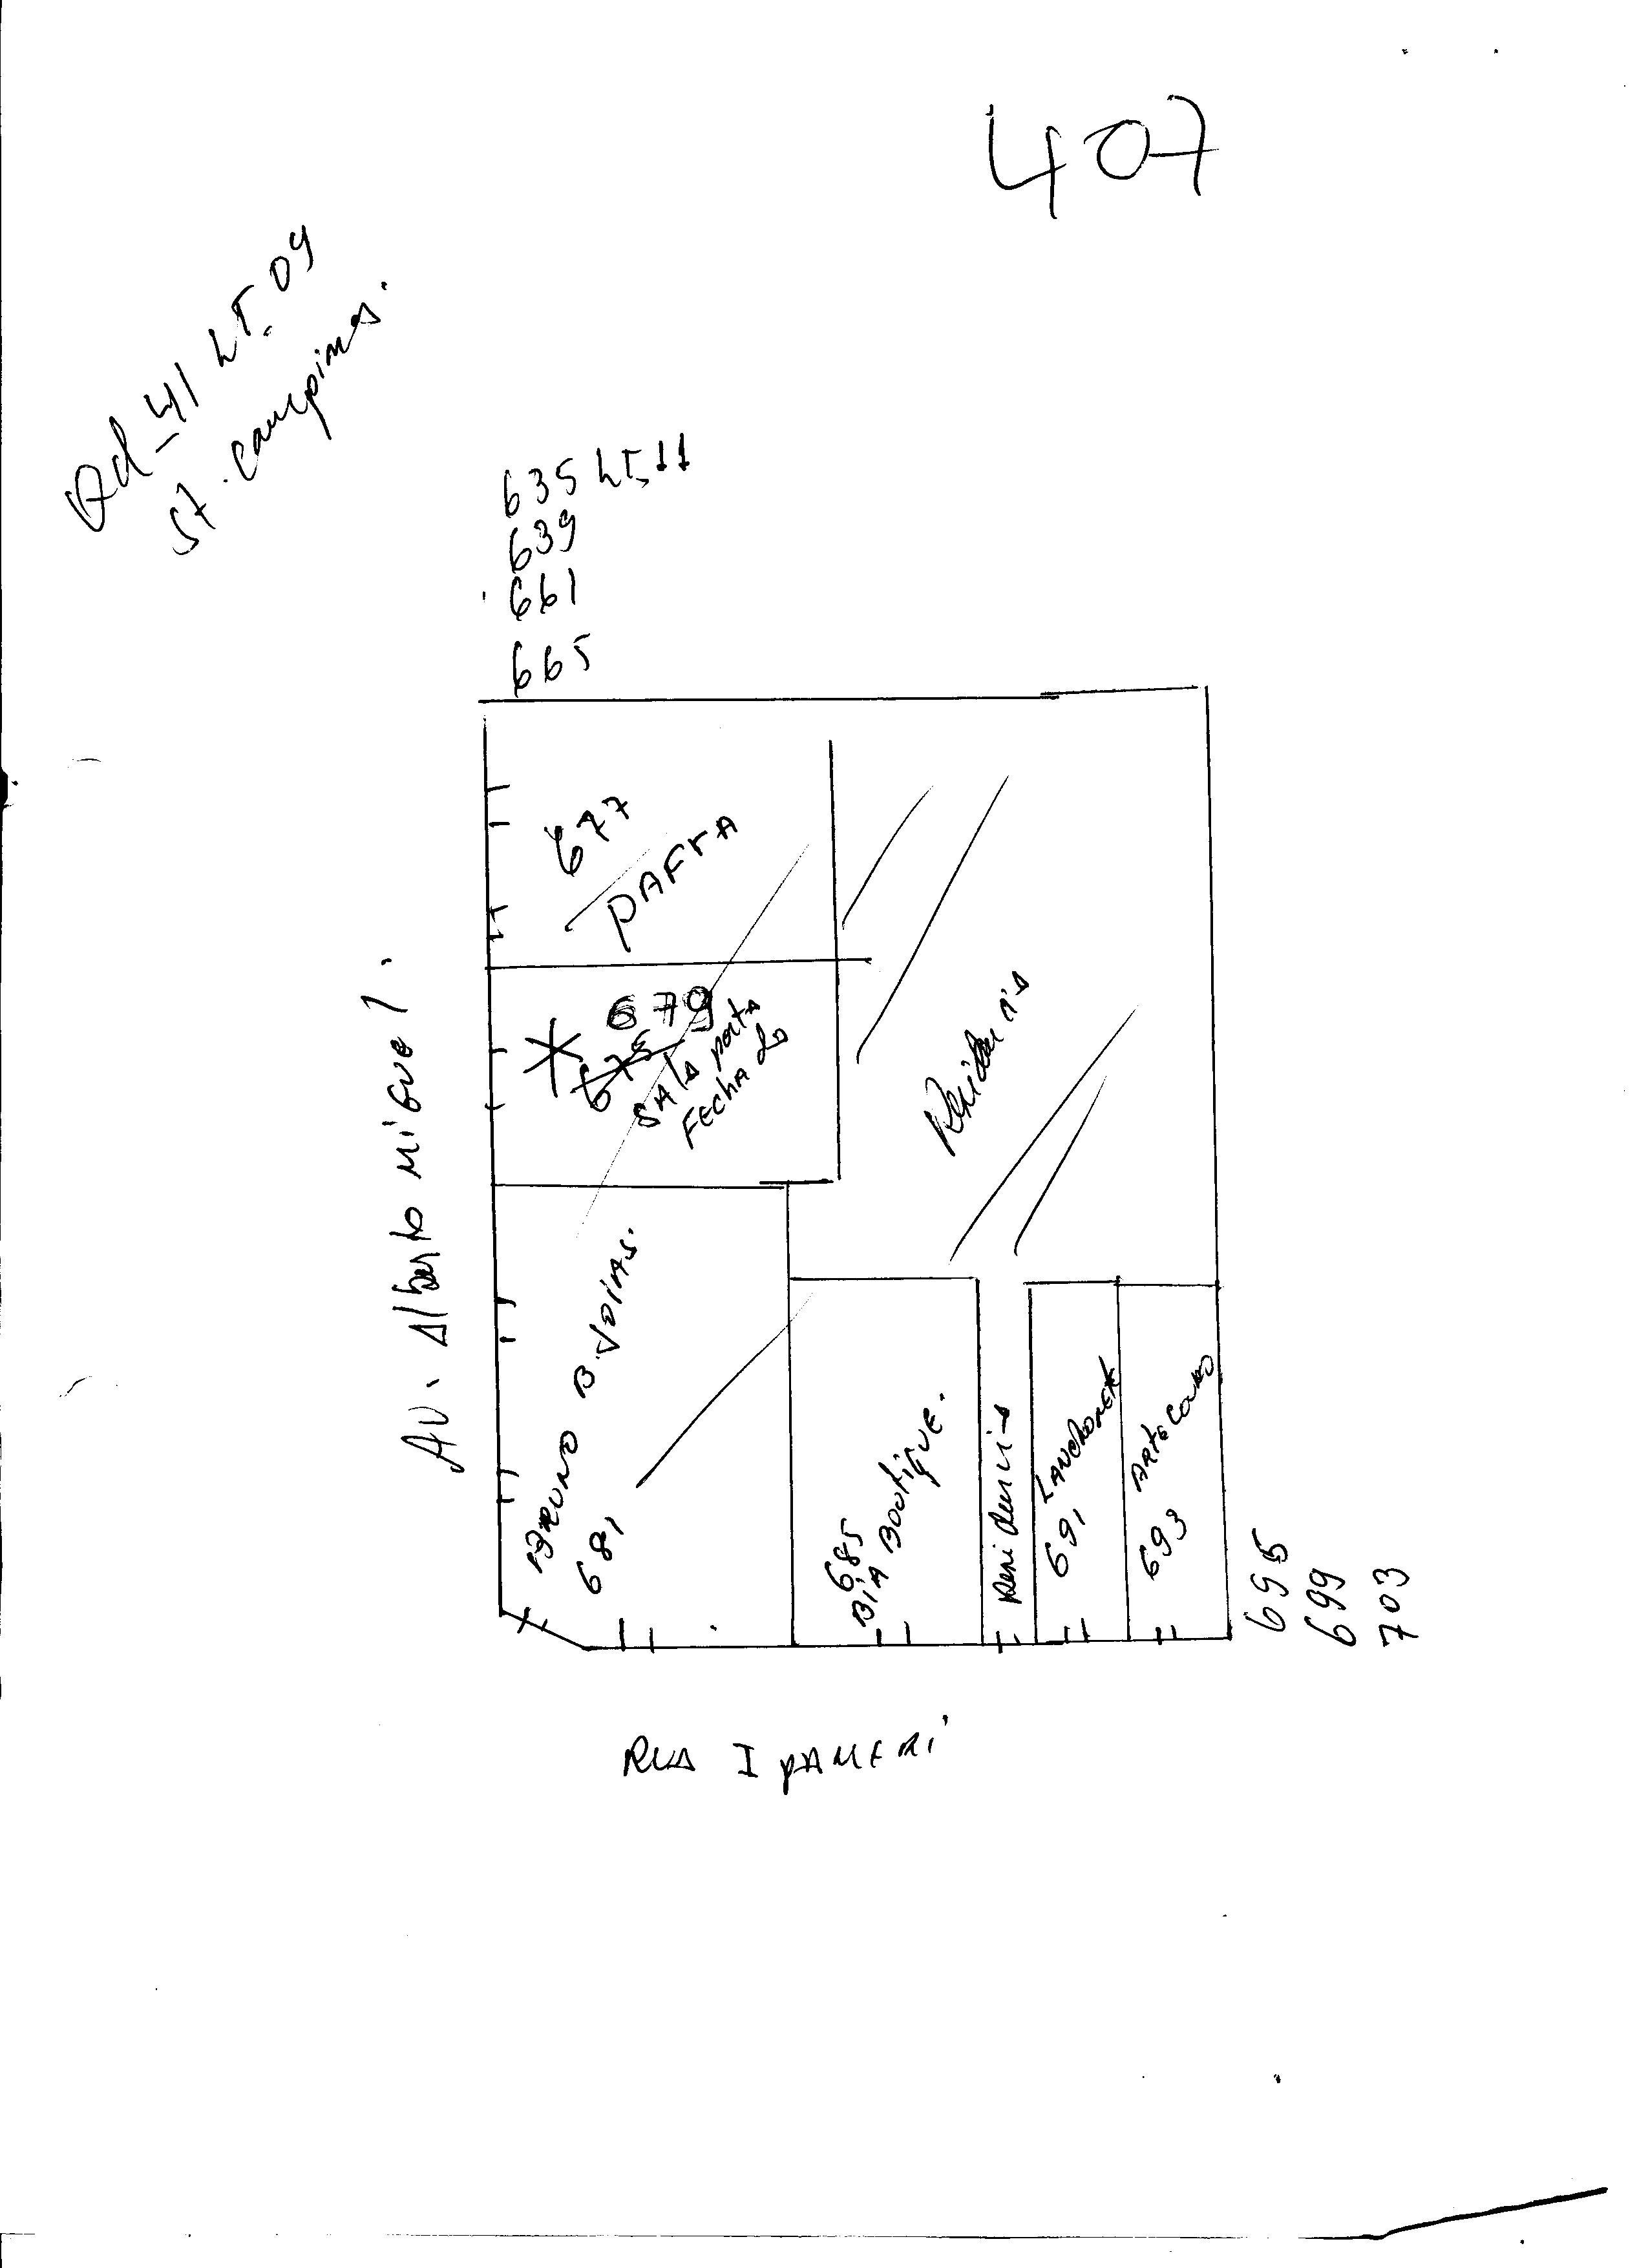 407
Qd-41 LT. 09
St. campinas.
635 LT.11
639
661
665
677
DAFRA
679
675
SALA porta
FechAdo
Residencia
Av. Alberto miguel.
BRUNO B. JOIAS.
681
685
BIA BOOTIQUE.
Residencia
LANCHONETE
691
ARTE COURO
693
695
699
703
RUA IPAMERI